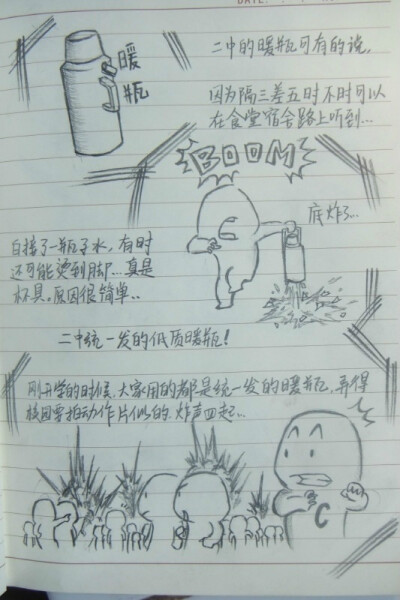 DATE.
暖
瓶
二中的暖瓶可有的说,
因为隔三差五时不时可以
在食堂宿舍路上听到...
BOOM
底炸了...
白接了一瓶子水,有时
还可能烫到脚...真是
杯具。原因很简单..
二中统一发的低质暖瓶!
刚开学的时候,大家用的都是统一发的暖瓶,弄得
校园要拍动作片似的.炸声四起..
C